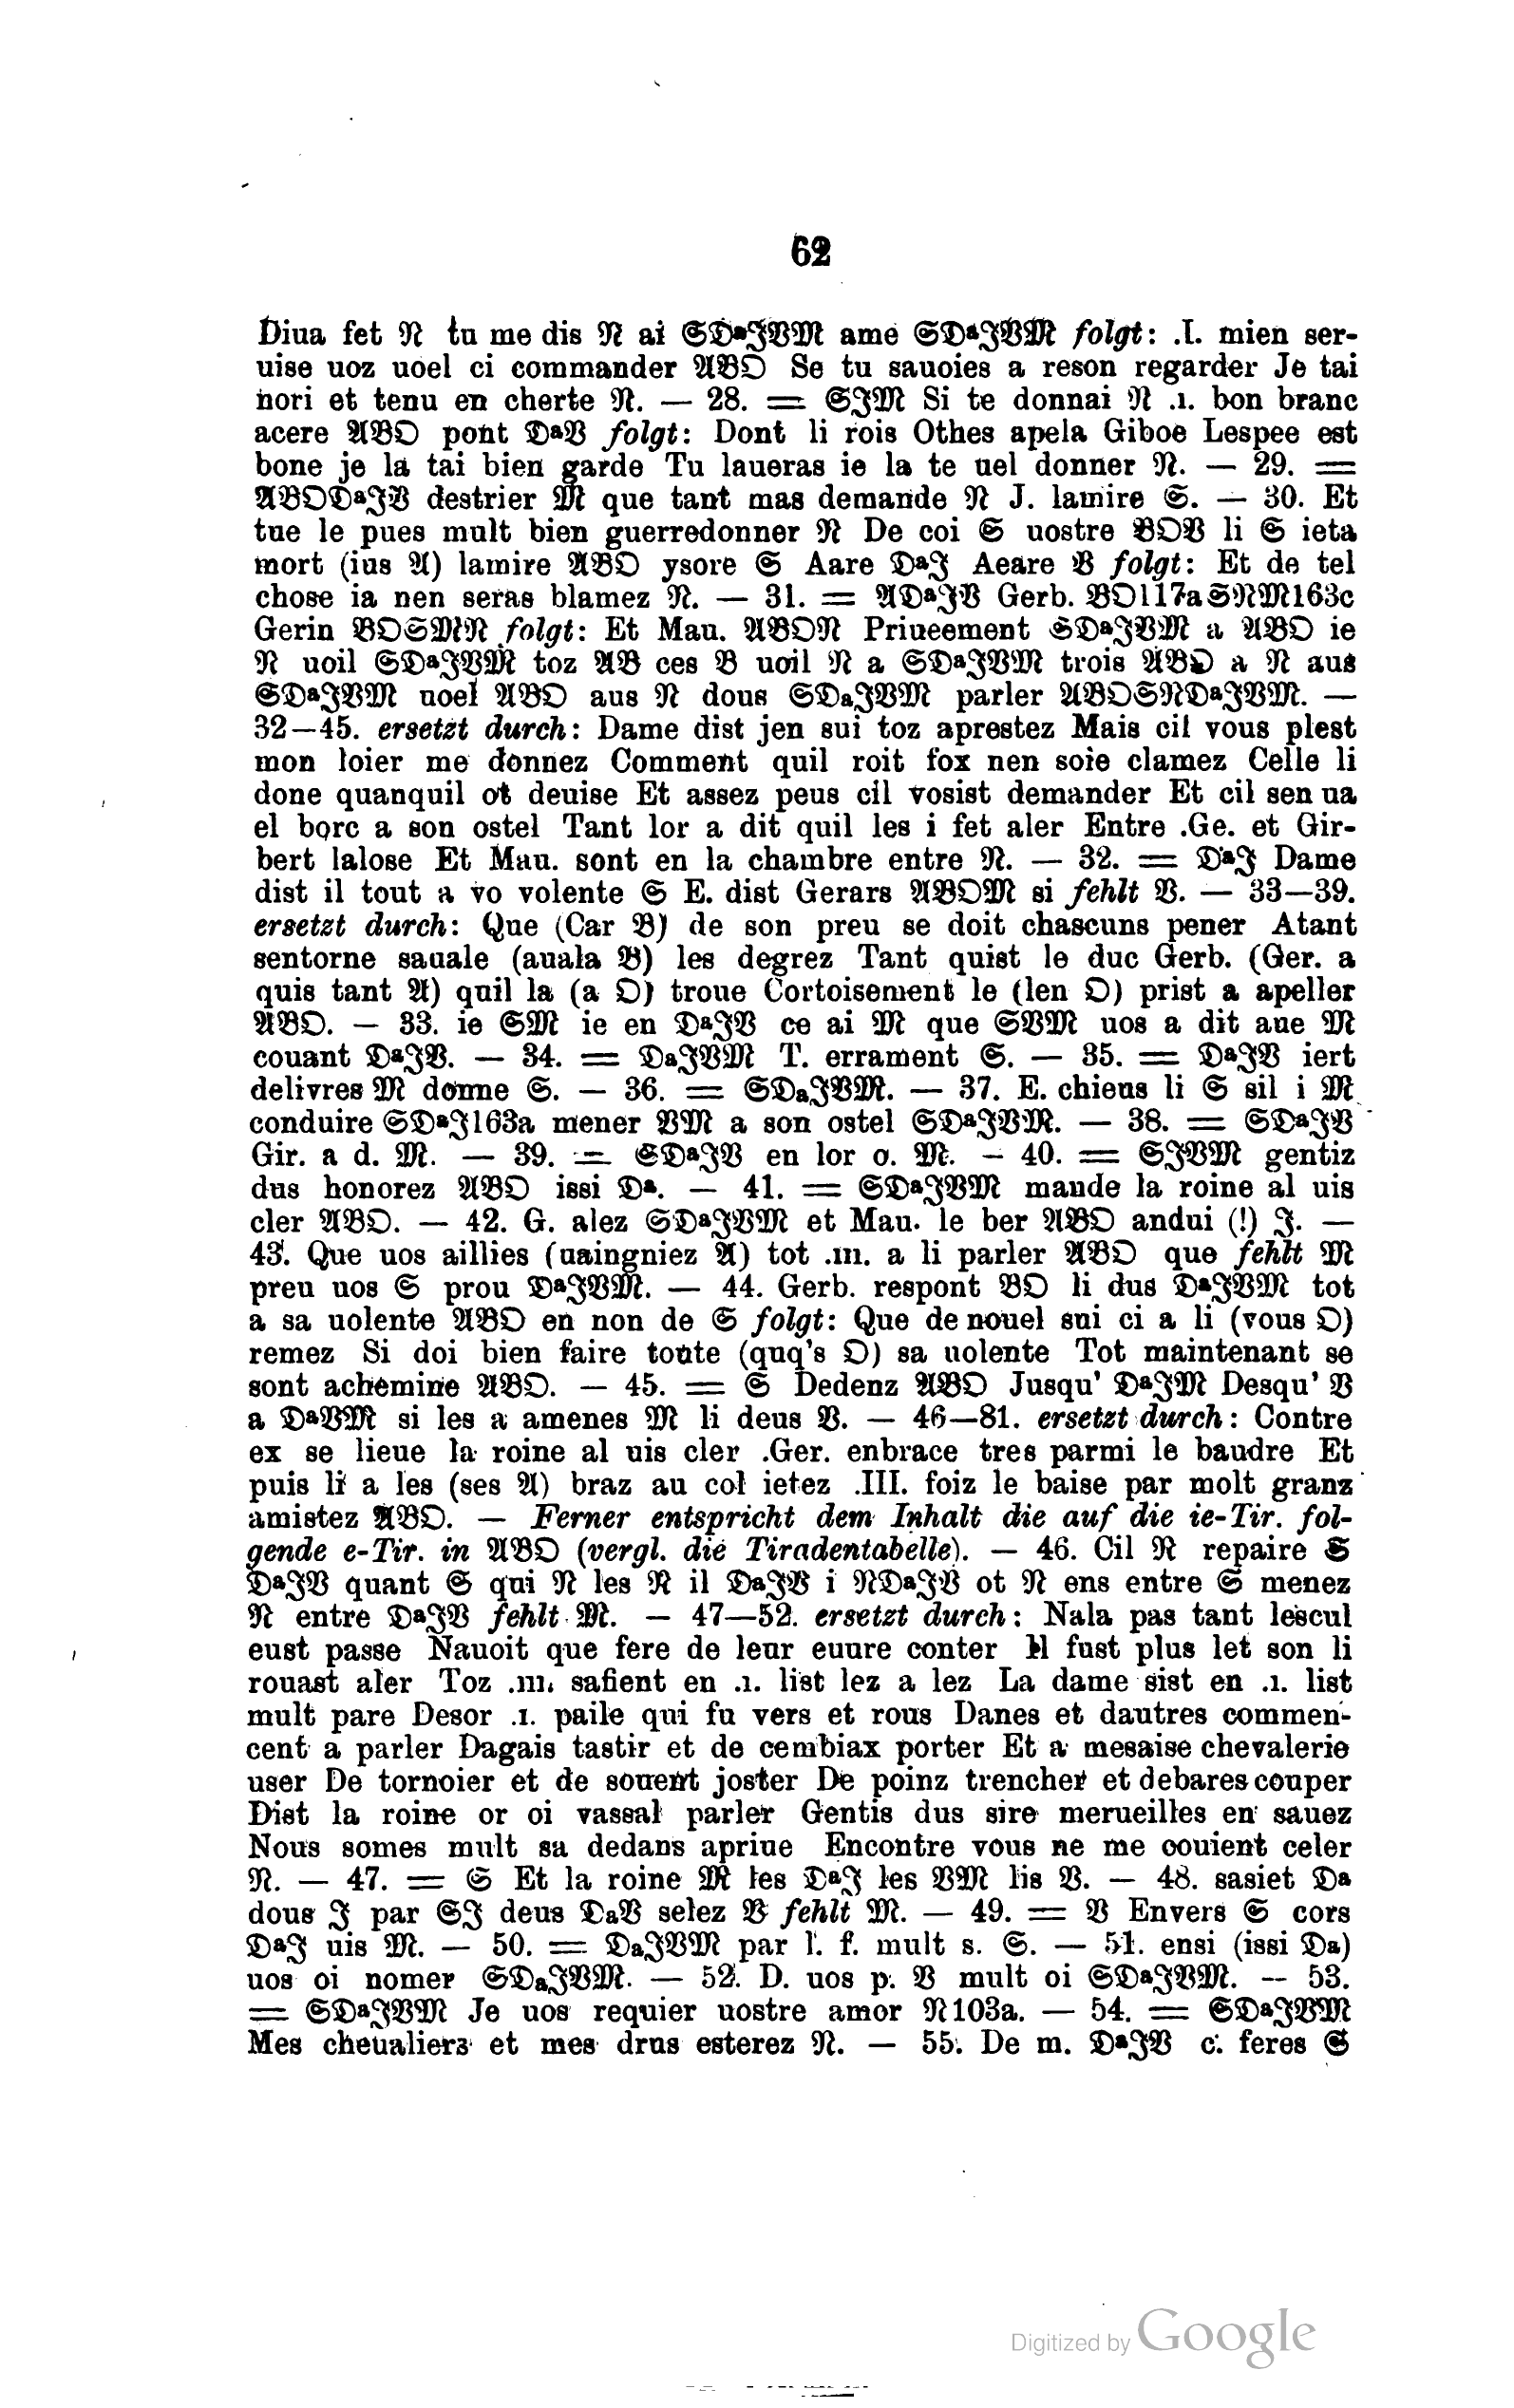 62
Diua fet 𝔑 tu me dis 𝔑 ai 𝔖𝔇ᵃ𝔍𝔙𝔐 ame 𝔖𝔇ᵃ𝔍𝔙𝔐 folgt: .I. mien ser-
uise uoz uoel ci commander 𝔄𝔅𝔒 Se tu sauoies a reson regarder Je tai
nori et tenu en cherte 𝔑. — 28. = 𝔖𝔍𝔐 Si te donnai 𝔑 .ı. bon branc
acere 𝔄𝔅𝔒 pont 𝔇ᵃ𝔙 folgt: Dont li rois Othes apela Giboe Lespee est
bone je la tai bien garde Tu laueras ie la te uel donner 𝔑. — 29. =
𝔄𝔅𝔒𝔇ᵃ𝔍𝔙 destrier 𝔐 que tant mas demande 𝔑 J. lamire 𝔖. — 30. Et
tue le pues mult bien guerredonner 𝔑 De coi 𝔖 uostre 𝔅𝔒𝔙 li 𝔖 ieta
mort (ius 𝔄) lamire 𝔄𝔅𝔒 ysore 𝔖 Aare 𝔇ᵃ𝔍 Aeare 𝔙 folgt: Et de tel
chose ia nen seras blamez 𝔑. — 31. = 𝔄𝔇ᵃ𝔍𝔙 Gerb. 𝔅𝔒117a𝔖𝔑𝔐163c
Gerin 𝔅𝔒𝔖𝔐𝔑 folgt: Et Mau. 𝔄𝔅𝔒𝔑 Priueement 𝔖𝔇ᵃ𝔍𝔙𝔐 a 𝔄𝔅𝔒 ie
𝔑 uoil 𝔖𝔇ᵃ𝔍𝔙𝔐 toz 𝔄𝔅 ces 𝔅 uoil 𝔑 a 𝔖𝔇ᵃ𝔍𝔙𝔐 trois 𝔄𝔅𝔒 a 𝔑 aus
𝔖𝔇ᵃ𝔍𝔙𝔐 uoel 𝔄𝔅𝔒 aus 𝔑 dous 𝔖𝔇ₐ𝔍𝔙𝔐 parler 𝔄𝔅𝔒𝔖𝔑𝔇ᵃ𝔍𝔙𝔐. —
32—45. ersetzt durch: Dame dist jen sui toz aprestez Mais cil vous plest
mon loier me donnez Comment quil roit fox nen soie clamez Celle li
done quanquil ot deuise Et assez peus cil vosist demander Et cil sen ua
el borc a son ostel Tant lor a dit quil les i fet aler Entre .Ge. et Gir-
bert lalose Et Mau. sont en la chambre entre 𝔑. — 32. = 𝔇ᵃ𝔍 Dame
dist il tout a vo volente 𝔖 E. dist Gerars 𝔄𝔅𝔒𝔐 si fehlt 𝔙. — 33—39.
ersetzt durch: Que (Car 𝔅) de son preu se doit chascuns pener Atant
sentorne sauale (auala 𝔅) les degrez Tant quist le duc Gerb. (Ger. a
quis tant 𝔄) quil la (a 𝔒) troue Cortoisement le (len 𝔒) prist a apeller
𝔄𝔅𝔒. — 33. ie 𝔖𝔐 ie en 𝔇ᵃ𝔍𝔙 ce ai 𝔐 que 𝔖𝔙𝔐 uos a dit aue 𝔐
couant 𝔇ᵃ𝔍𝔙. — 34. = 𝔇ₐ𝔍𝔙𝔐 T. errament 𝔖. — 35. = 𝔇ᵃ𝔍𝔙 iert
delivres 𝔐 donne 𝔖. — 36. = 𝔖𝔇ₐ𝔍𝔙𝔐. — 37. E. chiens li 𝔖 sil i 𝔐
conduire 𝔖𝔇ᵃ𝔍163a mener 𝔙𝔐 a son ostel 𝔖𝔇ᵃ𝔍𝔙𝔐. — 38. = 𝔖𝔇ᵃ𝔍𝔙
Gir. a d. 𝔐. — 39. = 𝔖𝔇ᵃ𝔍𝔙 en lor o. 𝔐. — 40. = 𝔖𝔍𝔙𝔐 gentiz
dus honorez 𝔄𝔅𝔒 issi 𝔇ᵃ. — 41. = 𝔖𝔇ᵃ𝔍𝔙𝔐 mande la roine al uis
cler 𝔄𝔅𝔒. — 42. G. alez 𝔖𝔇ᵃ𝔍𝔙𝔐 et Mau. le ber 𝔄𝔅𝔒 andui (!) 𝔍. —
43. Que uos aillies (uaingniez 𝔄) tot .ııı. a li parler 𝔄𝔅𝔒 que fehlt 𝔐
preu uos 𝔖 prou 𝔇ᵃ𝔍𝔙𝔐. — 44. Gerb. respont 𝔅𝔒 li dus 𝔇ᵃ𝔍𝔙𝔐 tot
a sa uolente 𝔄𝔅𝔒 en non de 𝔖 folgt: Que de nouel sui ci a li (vous 𝔒)
remez Si doi bien faire toute (quq's 𝔒) sa uolente Tot maintenant se
sont achemine 𝔄𝔅𝔒. — 45. = 𝔖 Dedenz 𝔄𝔅𝔒 Jusqu' 𝔇ᵃ𝔍𝔐 Desqu' 𝔙
a 𝔇ᵃ𝔙𝔐 si les a amenes 𝔐 li deus 𝔙. — 46—81. ersetzt durch: Contre
ex se lieue la roine al uis cler .Ger. enbrace tres parmi le baudre Et
puis li a les (ses 𝔄) braz au col ietez .III. foiz le baise par molt granz
amistez 𝔄𝔅𝔒. — Ferner entspricht dem Inhalt die auf die ie-Tir. fol-
gende e-Tir. in 𝔄𝔅𝔒 (vergl. die Tiradentabelle). — 46. Cil 𝔑 repaire 𝔖
𝔇ᵃ𝔍𝔙 quant 𝔖 qui 𝔑 les 𝔑 il 𝔇ᵃ𝔍𝔙 i 𝔑𝔇ᵃ𝔍𝔙 ot 𝔑 ens entre 𝔖 menez
𝔑 entre 𝔇ᵃ𝔍𝔙 fehlt 𝔐. — 47—52. ersetzt durch: Nala pas tant lescul
eust passe Nauoit que fere de leur euure conter Il fust plus let son li
rouast aler Toz .ııı. safient en .ı. list lez a lez La dame sist en .ı. list
mult pare Desor .ı. paile qui fu vers et rous Danes et dautres commen-
cent a parler Dagais tastir et de cembiax porter Et a mesaise chevalerie
user De tornoier et de souent joster De poinz trencher et debares couper
Dist la roine or oi vassal parler Gentis dus sire merueilles en sauez
Nous somes mult sa dedans apriue Encontre vous ne me couient celer
𝔑. — 47. = 𝔖 Et la roine 𝔐 les 𝔇ᵃ𝔍 les 𝔙𝔐 lis 𝔙. — 48. sasiet 𝔇ᵃ
dous 𝔍 par 𝔖𝔍 deus 𝔇ₐ𝔙 selez 𝔙 fehlt 𝔐. — 49. = 𝔙 Envers 𝔖 cors
𝔇ᵃ𝔍 uis 𝔐. — 50. = 𝔇ₐ𝔍𝔙𝔐 par l'. f. mult s. 𝔖. — 51. ensi (issi 𝔇ᵃ)
uos oi nomer 𝔖𝔇ₐ𝔍𝔙𝔐. — 52. D. uos p. 𝔙 mult oi 𝔖𝔇ᵃ𝔍𝔙𝔐. — 53.
= 𝔖𝔇ᵃ𝔍𝔙𝔐 Je uos requier uostre amor 𝔑103a. — 54. = 𝔖𝔇ᵃ𝔍𝔙𝔐
Mes cheualiers et mes drus esterez 𝔑. — 55. De m. 𝔇ᵃ𝔍𝔙 c. feres 𝔖
Digitized by Google